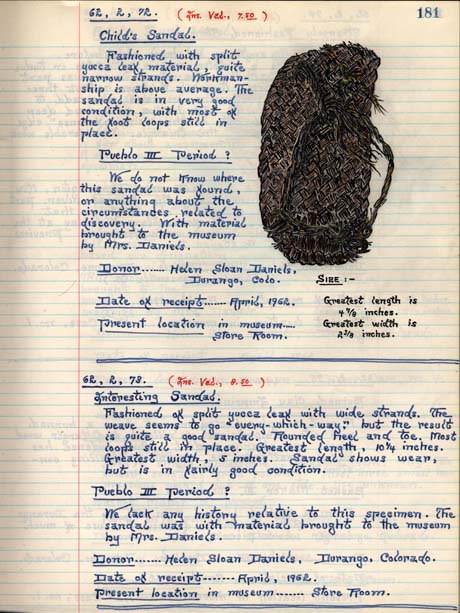 181
62, 2, 72. (Ins. Val., 7.50)
Child's Sandal.
Fashioned with split
yucca leaf material, quite
narrow strands. Workman-
ship is above average. The
sandal is in very good
condition, with most of
the foot loops still in
place.
Pueblo III Period ?
We do not know where
this sandal was found,
or anything about the
circumstances related to
discovery. With material
brought to the museum
by Mrs. Daniels.
Donor...... Helen Sloan Daniels,
Durango, Colo.
Date of receipt...... April, 1962.
Present location in museum.....
Store Room.
SIZE :-
Greatest length is
4 7/8 inches.
Greatest width is
inches.
62, 2, 73. (Ins. Val., 8.50)
Interesting Sandal.
Fashioned of split yucca leaf with wide strands. The
weave seems to go "every-which-way" but the result
is quite a good sandal. Rounded heel and toe. Most
loops still in place. Greatest length, 10 1/4 inches.
Greatest width, 5 inches. Sandal shows wear,
but is in fairly good condition.
Pueblo III Period ?
We lack any history relative to this specimen. The
sandal was with material brought to the museum
by Mrs. Daniels.
Donor...... Helen Sloan Daniels, Durango, Colorado.
Date of receipt....... April, 1962.
Present location in museum ....... Store Room.